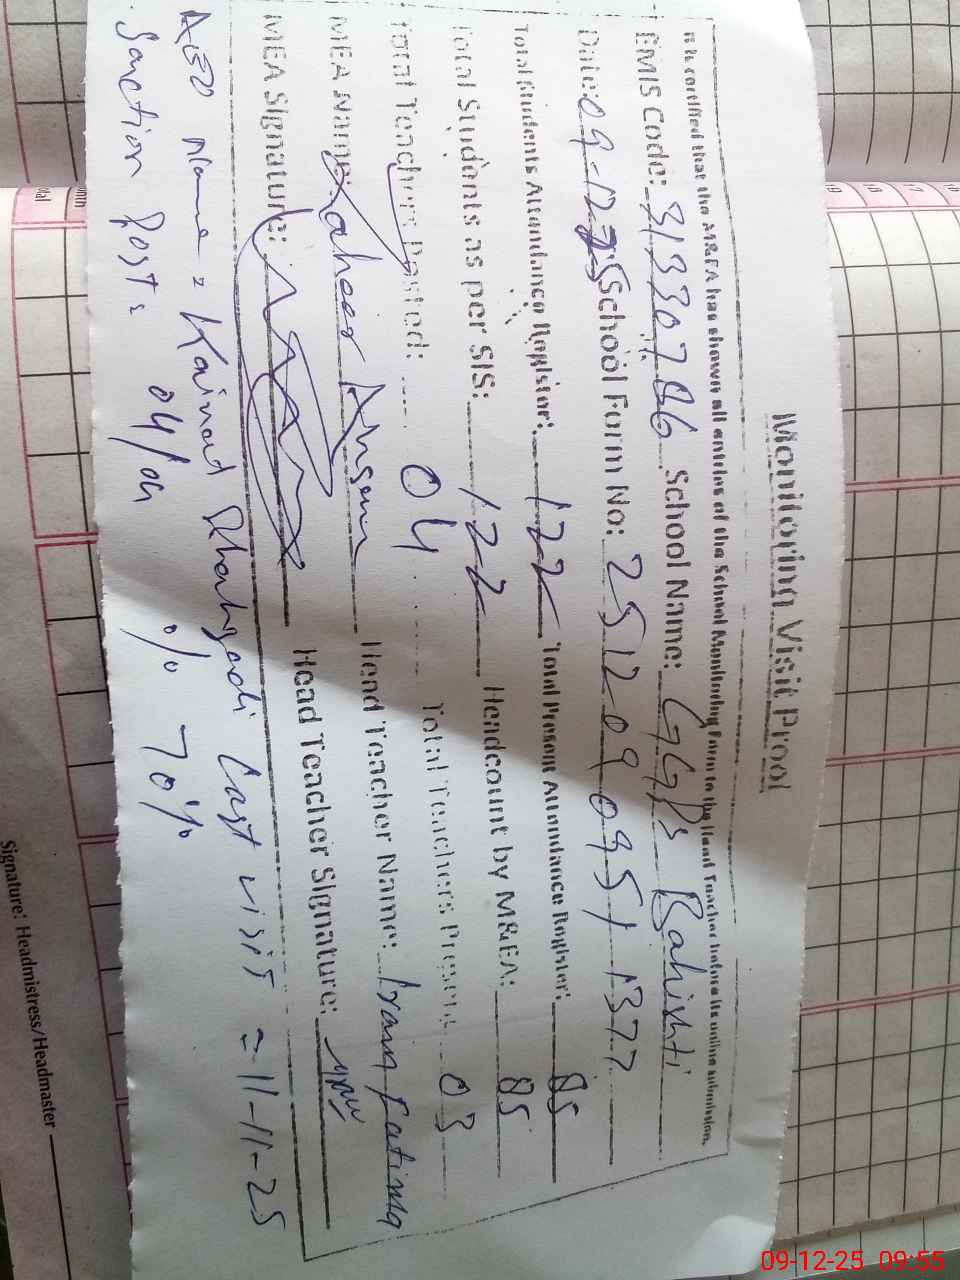 Monitoring Visit Proof
It is certified that the M&EA has shown all entries of the School Monitoring Form to the Head Teacher before its online submission.
EMIS Code: 31330786 School Name: GGPS Bahishti
Date: 09-12-25 School Form No: 25120909511377
Total Students Attendance Register: 122 Total Present Attendance Register: 85
Total Students as per SIS: 122 Headcount by M&EA: 85
Total Teachers Posted: 04 Total Teachers Present: 03
MEA Name: Zaheer Head Teacher Name: Fatima
MEA Signature: Head Teacher Signature:
AEO Name = Kainaat Last visit = 11-11-25
Sanction Post: 04/04 % 70%
Signature: Headmistress/Headmaster
16
17
09-12-25 09:55